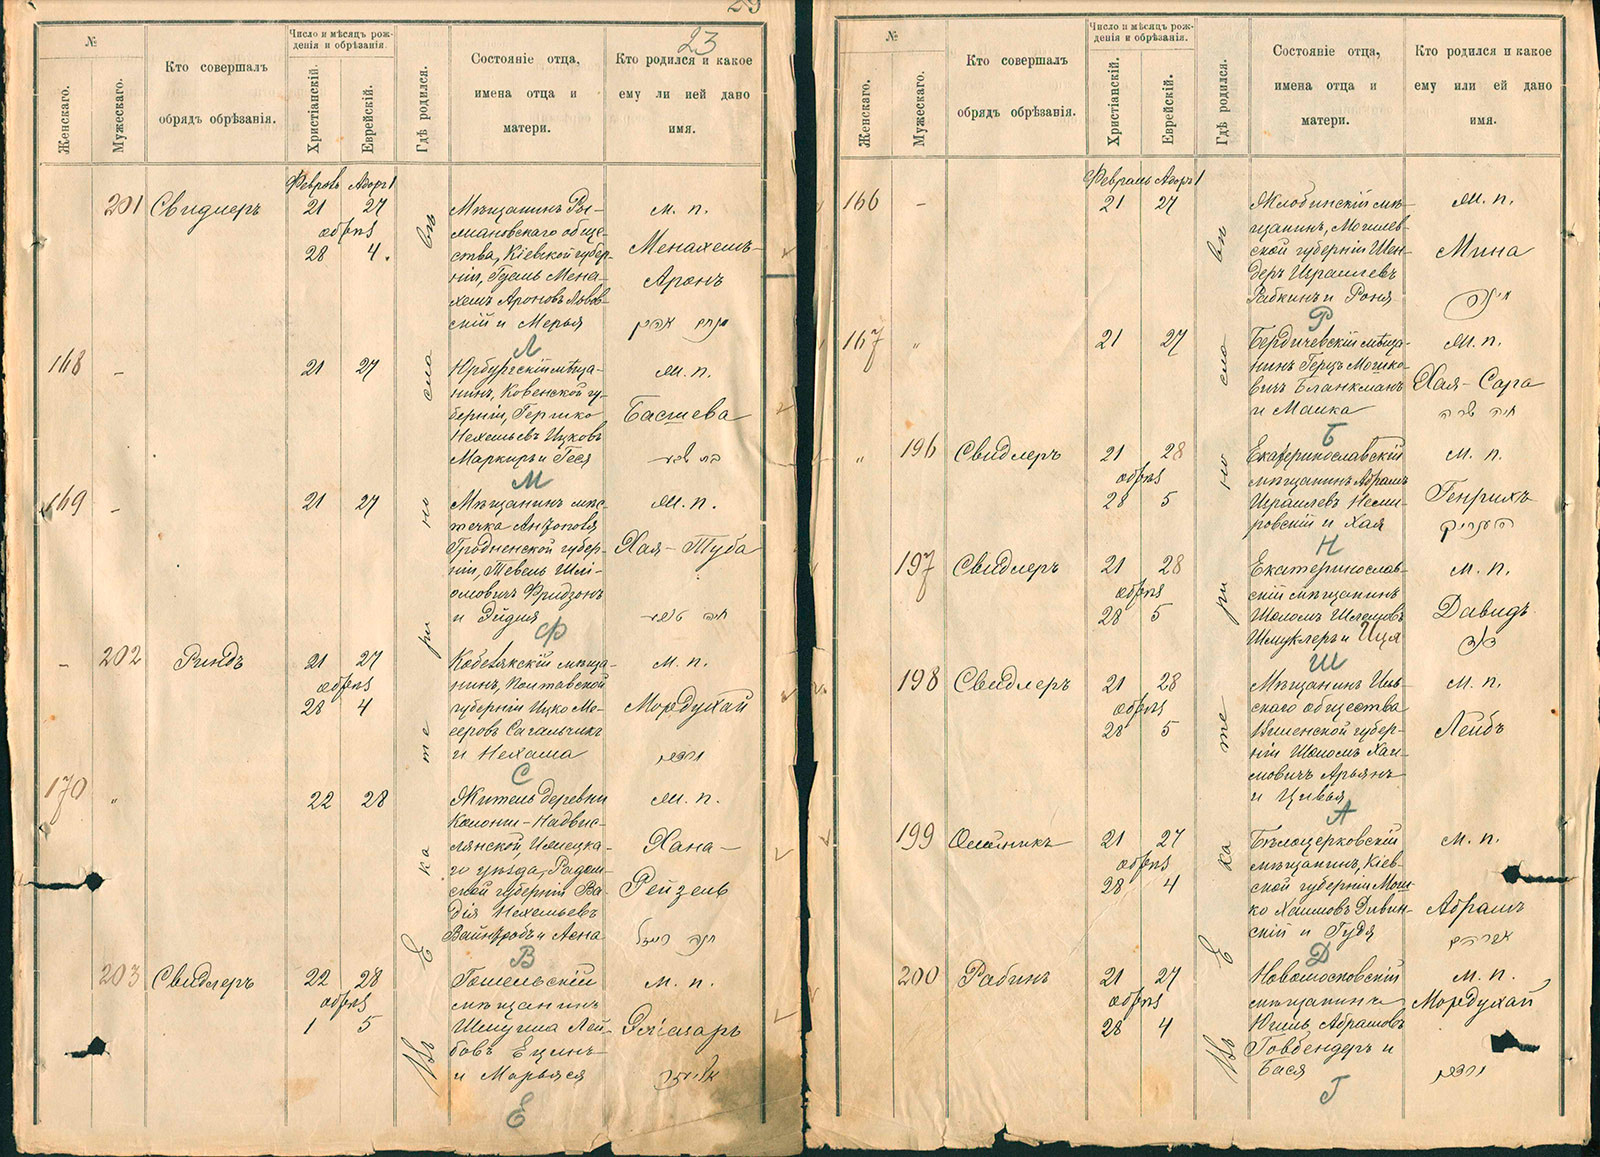 23
№
Женскаго.
Мужескаго.
Кто совершалъ
обрядъ обрѣзанія.
Число и мѣсяцъ рож-
денія и обрѣзанія.
Христіанскій.
Еврейскій.
Гдѣ родился.
Состояніе отца,
имена отца и
матери.
Кто родился и какое
ему ли ией дано
имя.
Въ Екатеринославѣ
201 Свидлеръ
Февраль Адоръ 1
21 27
обрѣз
28 4.
Мѣщанинъ
мановскаго обще-
ства, Кіевской губер-
ніи, Мена-
хемъ Ароновъ Львов-
скій и Мерья
Л
м. п.
Менахемъ-
Аронъ
מנחם אהרן
168 -
21 27
Юрбургскій мѣща-
нинъ, Ковенской гу-
берніи, Гершко
Нехемьевъ Ицковъ
Маркиръ и Геся
М
м. п.
Басшева
בת שבע
169 -
21 27
Мѣщанинъ мѣс-
течка Антополя
Гродненской губер-
ніи, Тевель Шлі-
омовичъ Фридзонъ
и Эйдля
Ф
м. п.
Хая-Туба
- 202 Риндъ
21 27
обрѣз
28 4
Кобелякскій мѣща-
нинъ, Полтавской
губерніи Ицко Мо-
серовъ Сагальчикъ
и Нехама
С
м. п.
Мордухай
מרדכי
170 "
22 28
Житель деревни
Колоніи-Надвис-
лянской, Илжецка-
го уѣзда, Радом-
ской губерніи Ва-
дія Нехемьевъ
Вайнтробъ и Асна
В
м. п.
Хана-
Рейзель
חנה רייזל
203 Свидлеръ
22 28
обрѣз
1 5
Гомельскій
мѣщанинъ
Шмуила Лей-
бовъ Ецинъ
и Марьяся
Е
м. п.
Эліазаръ
№
Женскаго.
Мужескаго.
Кто совершалъ
обрядъ обрѣзанія.
Число и мѣсяцъ рож-
денія и обрѣзанія.
Христіанскій.
Еврейскій.
Гдѣ родился.
Состояніе отца,
имена отца и
матери.
Кто родился и какое
ему или ей дано
имя.
Въ Екатеринославѣ
166 -
Февраль Адоръ 1
21 27
Жлобинскій мѣ-
щанинъ, Могилев-
ской губерніи Шен-
деръ Израилевъ
Рабкинъ и Роня
Р
м. п.
Мина
167 "
21 27
Бердичевскій мѣща-
нинъ Герцъ Мошко-
вичъ Бланкманъ
и Малка
Б
м. п.
Хая-Сара
חיה שרה
" 196 Свидлеръ
21 28
обрѣз
28 5
Екатеринославскій
мѣщанинъ Абрамъ
Израилевъ Неми-
ровскій и Хая
Н
м. п.
Генрихъ
העניריך
197 Свидлеръ
21 28
обрѣз
28 5
Екатеринослав-
скій мѣщанинъ
Шоломъ Шлемовъ
Шмуклеръ и Ція
Ш
м. п.
Давидъ
דוד
198 Свидлеръ
21 28
обрѣз
28 5
Мѣщанинъ
скаго общества
Виленской губер-
ніи Шоломъ Хаи-
мовичъ Арьянъ
и Цивья
А
м. п.
Лейбъ
199 Олейникъ
21 27
обрѣз
28 4
Бѣлоцерковскій
мѣщанинъ, Кіев-
ской губерніи Мош-
ко Хаимовъ Дивин-
скій и Гудя
Д
м. п.
Абрамъ
אברהם
200 Рабинъ
21 27
обрѣз
28 4
Новомосковскій
мѣщанинъ
Юшль Абрамовъ
Говбендеръ и
Бася
Г
м. п.
Мордухай
מרדכי